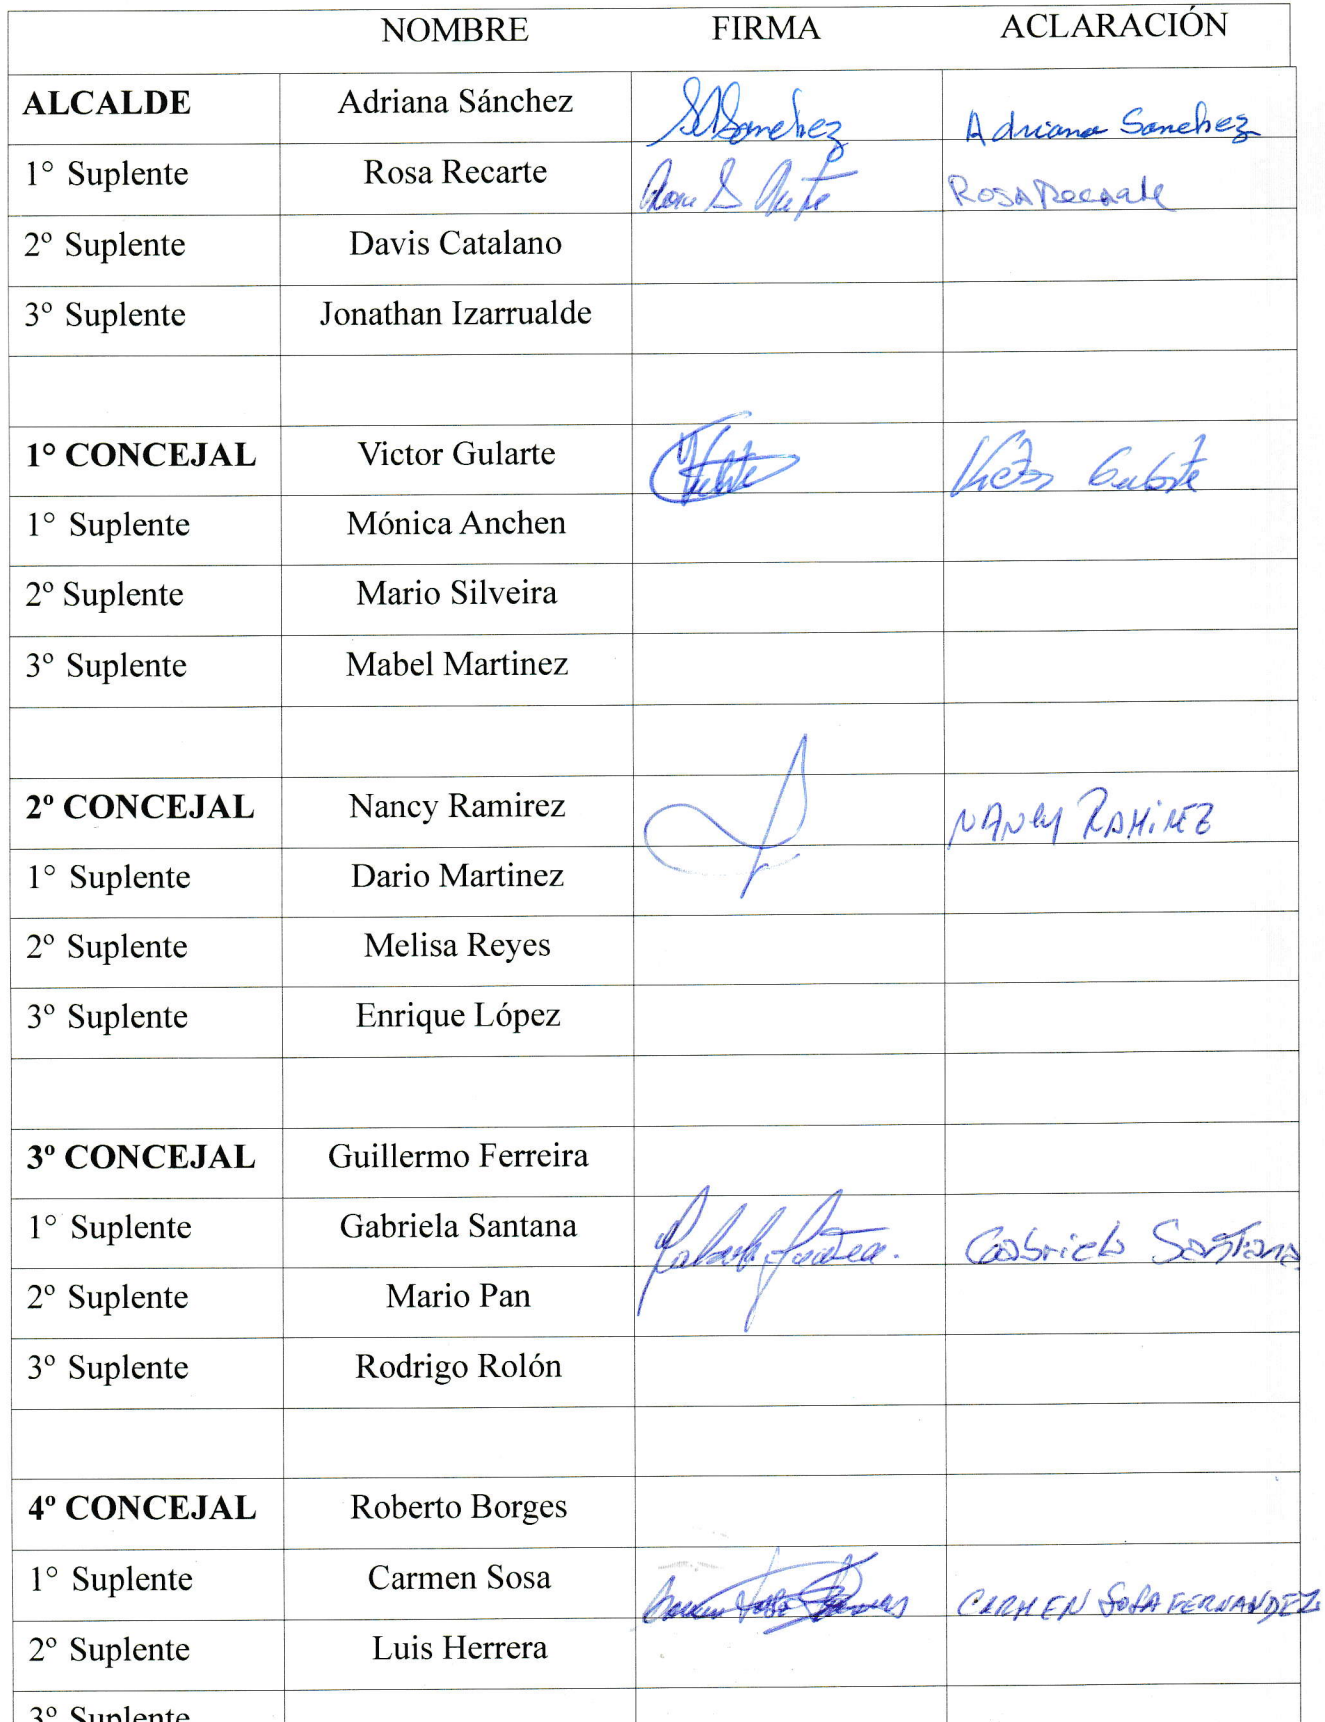 NOMBRE FIRMA ACLARACIÓN
ALCALDE Adriana Sánchez Sanchez Adriana Sanchez
1° Suplente Rosa Recarte Rosa Recarte
2º Suplente Davis Catalano
3º Suplente Jonathan Izarrualde
1° CONCEJAL Victor Gularte Victor Gularte
1° Suplente Mónica Anchen
2º Suplente Mario Silveira
3º Suplente Mabel Martinez
2º CONCEJAL Nancy Ramirez NANCY RAMIREZ
1° Suplente Dario Martinez
2º Suplente Melisa Reyes
3º Suplente Enrique López
3º CONCEJAL Guillermo Ferreira
1° Suplente Gabriela Santana Gabriela Santana
2º Suplente Mario Pan
3º Suplente Rodrigo Rolón
4º CONCEJAL Roberto Borges
1° Suplente Carmen Sosa CARMEN SOSA FERNANDEZ
2º Suplente Luis Herrera
3º Suplente